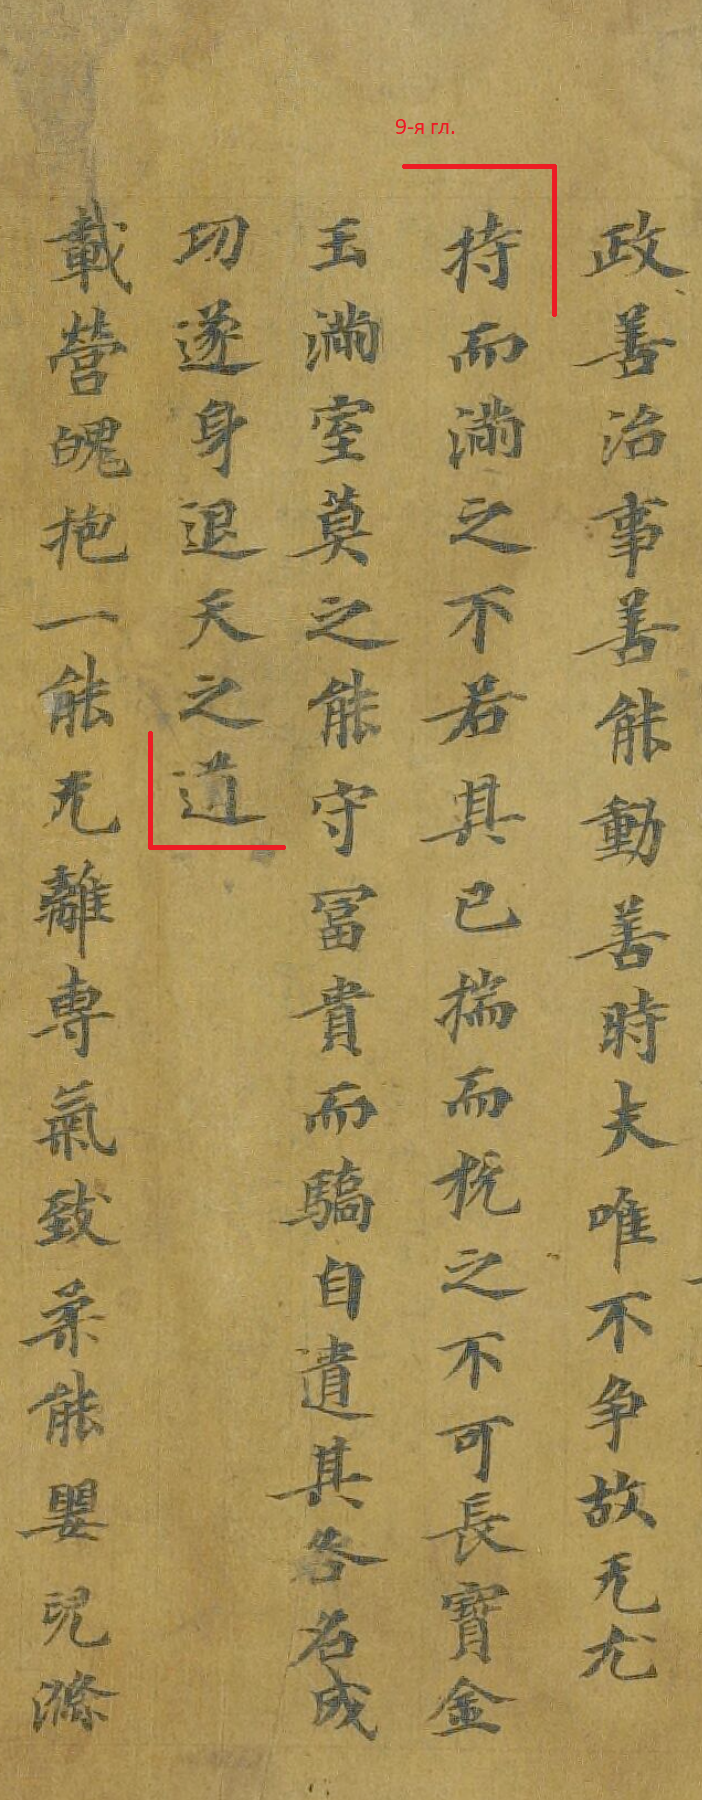 9-я гл.
政善治事善能動善時夫唯不争故无尤
持而滿之不若其已揣而梲之不可長寳金
玉滿室莫之能守冨貴而驕自遺其咎名成
功遂身退天之道
載營魄抱一能无離專氣致柔能嬰兒滌